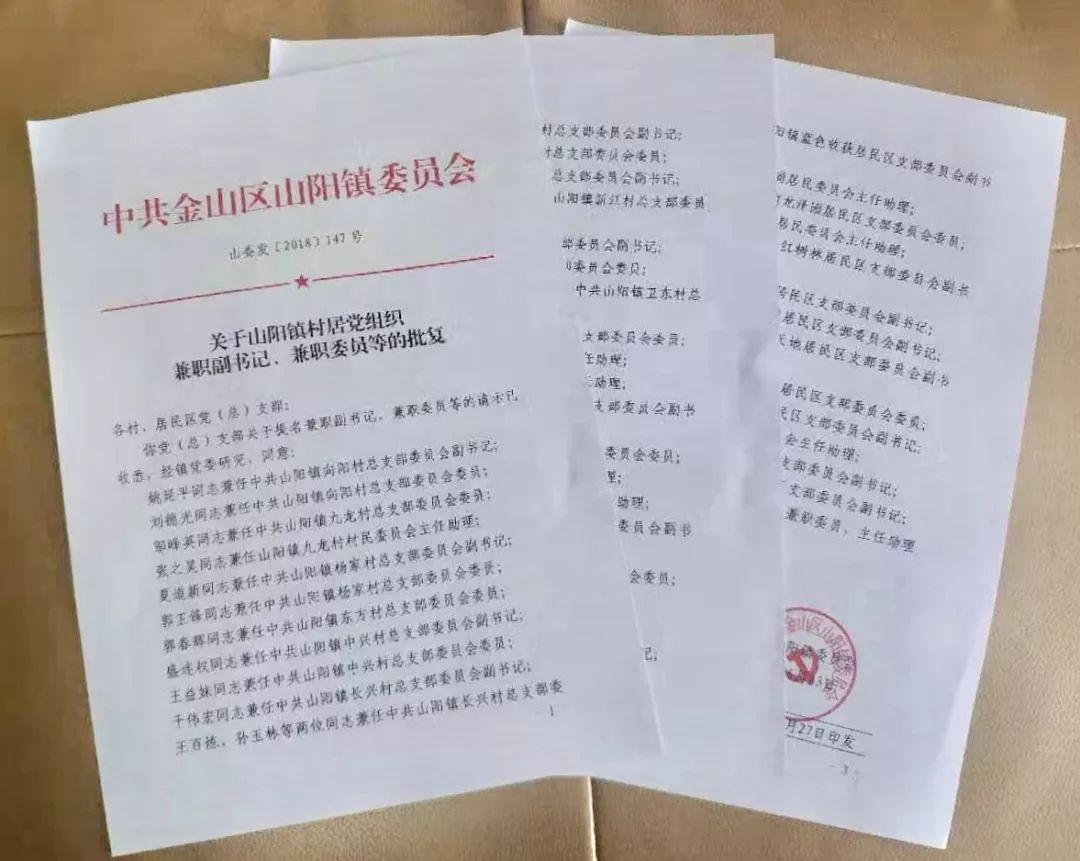 中共金山区山阳镇委员会
山委发〔2018〕147号
关于山阳镇村居党组织
兼职副书记、兼职委员等的批复
各村、居民区党（总）支部：
你党（总）支部关于提名兼职副书记、兼职委员等的请示已
收悉。经镇党委研究，同意：
姚延平同志兼任中共山阳镇向阳村总支部委员会副书记；
刘德光同志兼任中共山阳镇向阳村总支部委员会委员；
邬峰英同志兼任中共山阳镇九龙村总支部委员会委员；
张之昊同志兼任山阳镇九龙村村民委员会主任助理；
夏道新同志兼任中共山阳镇杨家村总支部委员会副书记；
郭王锋同志兼任中共山阳镇杨家村总支部委员会委员；
郭春辉同志兼任中共山阳镇东方村总支部委员会委员；
盛连权同志兼任中共山阳镇中兴村总支部委员会副书记；
王益妹同志兼任中共山阳镇中兴村总支部委员会委员；
干伟宏同志兼任中共山阳镇长兴村总支部委员会副书记；
王百拣、孙玉林等两位同志兼任中共山阳镇长兴村总支部委
- 1
村总支部委员会副书记；
村总支部委员会委员；
总支部委员会副书记；
山阳镇新江村总支部委员
部委员会副书记；
委员会委员；
中共山阳镇卫东村总
支部委员会委员；
任助理；
主助理；
支部委员会副书
委员会委员；
助理；
委员会副书
会委员；
记；
阳镇蓝色收获居民区支部委员会副书
居民委员会主任助理；
龙泽园居民区支部委员会委员；
居民委员会主任助理；
红树林居民区支部委员会副书
居民区支部委员会副书记；
居民区支部委员会副书记；
天地居民区支部委员会副书
居民区支部委员会委员；
民区支部委员会副书记；
会主任助理；
支部委员会副书记；
支部委员会副书记；
兼职委员，主任助理
金山区山阳镇委员会
阳镇委员
3日
月27日印发
- 3